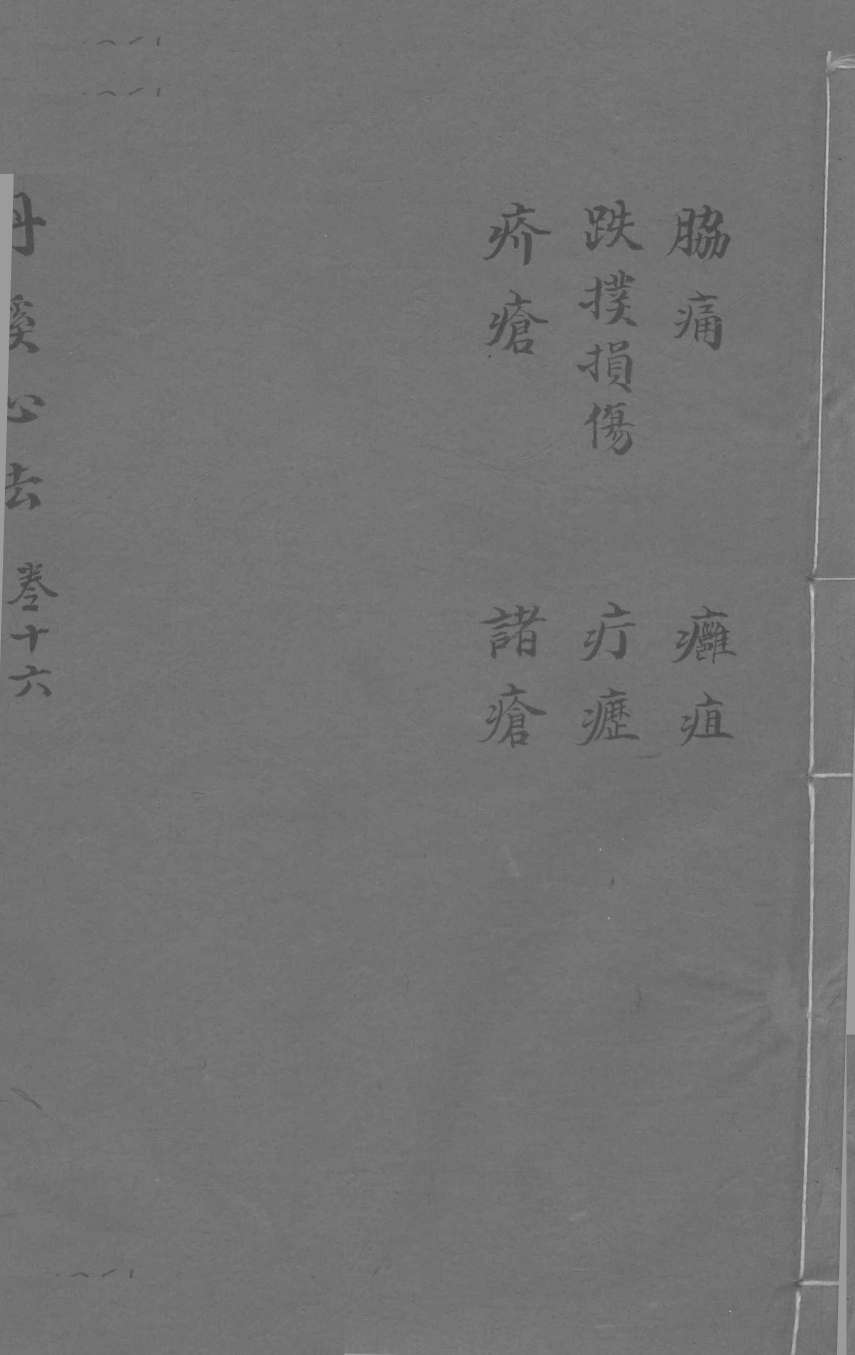 脇痛　癰疽
跌撲損傷　疔癧
疥瘡　諸瘡
丹溪心法 卷十六